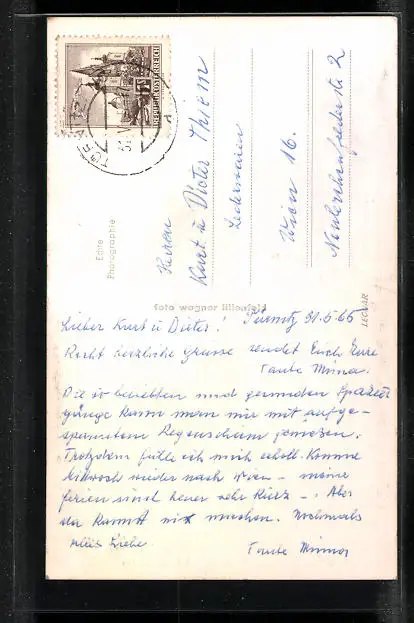 REPUBLIK ÖSTERREICH
Echte
Photographie
Herren
Kurt u Dieter Thiem
Lederwaren
Wien 16.
Neulerchenfelderstr 2
foto wagner lilienfeld
LEGKAR
Lieber Kurt u Dieter! Türnitz 31.5.65
Recht herzliche Grüsse sendet Euch Eure
Tante Minna.
Die so beliebten und gesunden Spazier
gänge kann man nur mit aufge-
spanntem Regenschirm genießen.
Trotzdem fühle ich mich wohl. Komme
Mittwoch wieder nach Wien – meine
ferien sind heuer sehr kurz –. Aber
da kannst nix machen. Nochmals
alles Liebe
Tante Minna